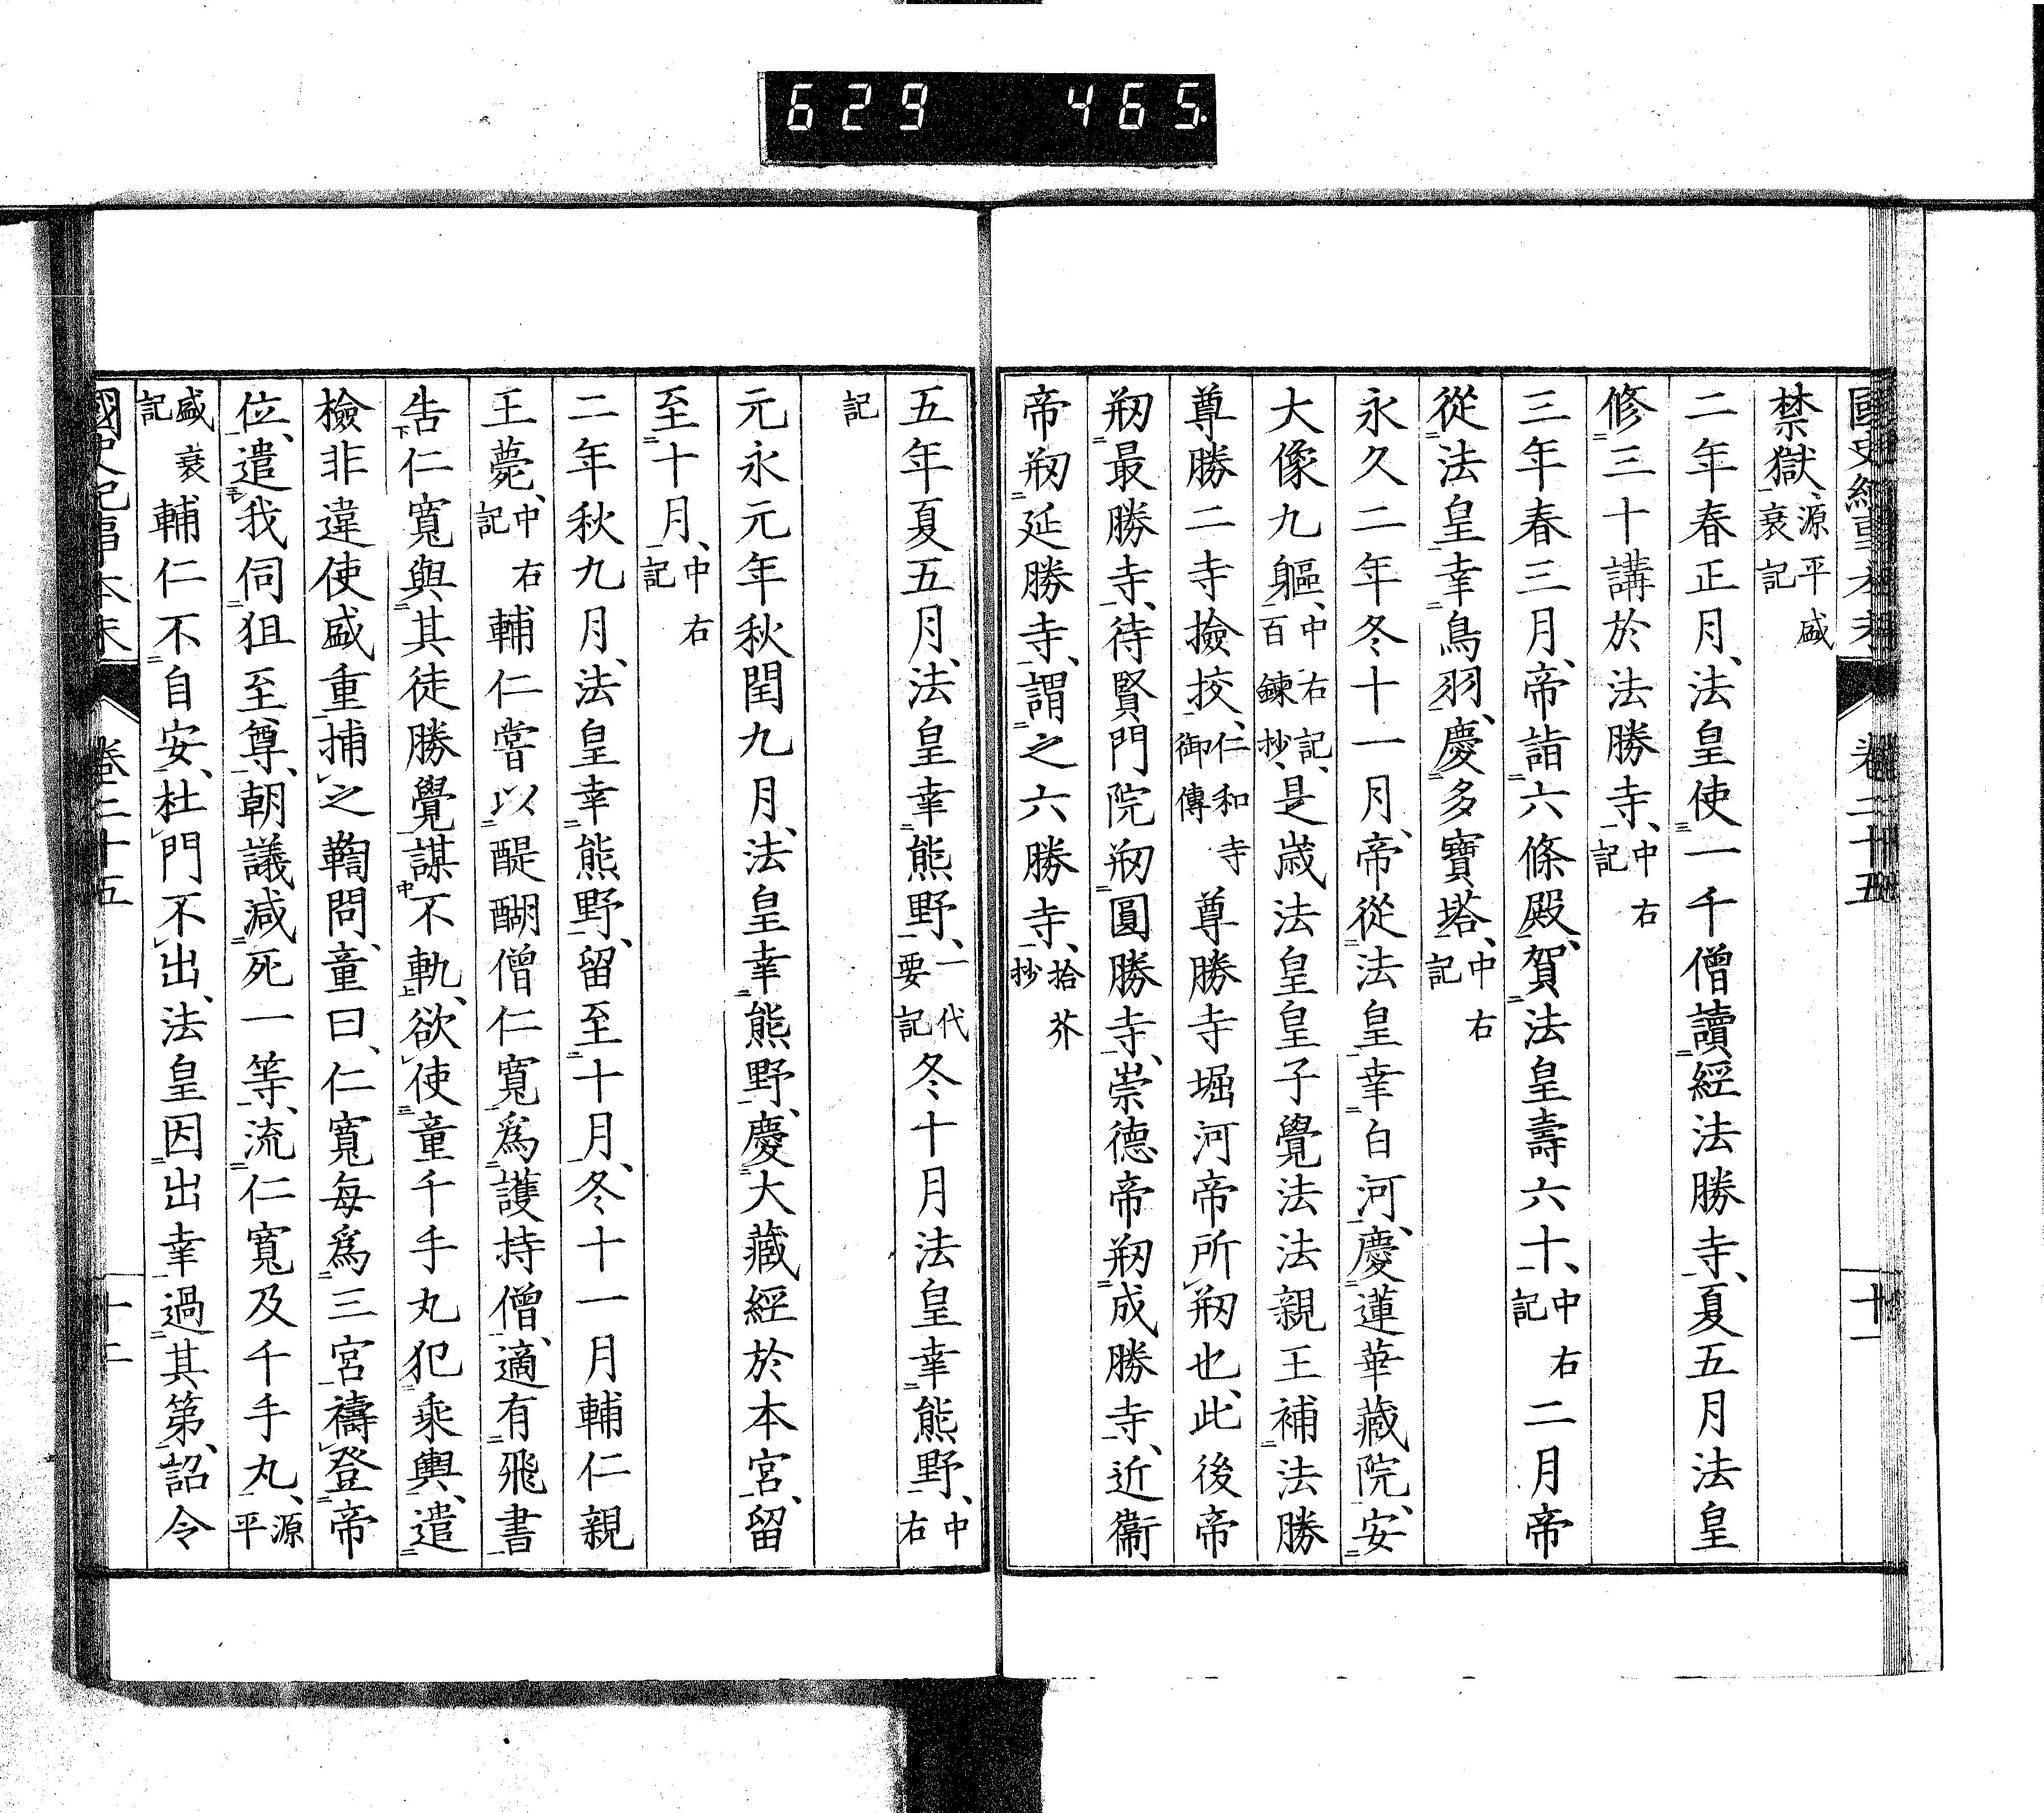 629 465
國史紀事本末 卷二十五 十一
禁獄、源平盛衰記
二年春正月、法皇使一千僧讀經法勝寺、夏五月法皇
修三十講於法勝寺、中右記
三年春三月、帝詣六條殿、賀法皇壽六十、中右記 二月帝
從法皇幸鳥羽、慶多寶塔、中右記
永久二年冬十一月、帝從法皇幸白河、慶蓮華藏院、安
大像九軀、中右記、百鍊抄、是歲法皇皇子覺法法親王補法勝
尊勝二寺撿挍、仁和寺御傳 尊勝寺堀河帝所剏也、此後帝
剏最勝寺、待賢門院剏圓勝寺、崇德帝剏成勝寺、近衞
帝剏延勝寺、謂之六勝寺、拾芥抄
五年夏五月、法皇幸熊野、一代要記 冬十月法皇幸熊野、中右
記
元永元年秋閏九月、法皇幸熊野、慶大藏經於本宮、留
至十月、中右記
二年秋九月、法皇幸熊野、留至十月、冬十一月輔仁親
王薨、中右記 輔仁嘗以醍醐僧仁寬爲護持僧、適有飛書
告仁寬與其徒勝覺謀不軌、欲使童千手丸犯乘輿、遣
檢非違使盛重捕之鞫問、童曰、仁寬每爲三宮禱登帝
位、遣我伺狙至尊、朝議減死一等、流仁寬及千手丸、源平
盛衰記 輔仁不自安、杜門不出、法皇因出幸過其第、詔令
國史紀事本末 卷二十五 十二